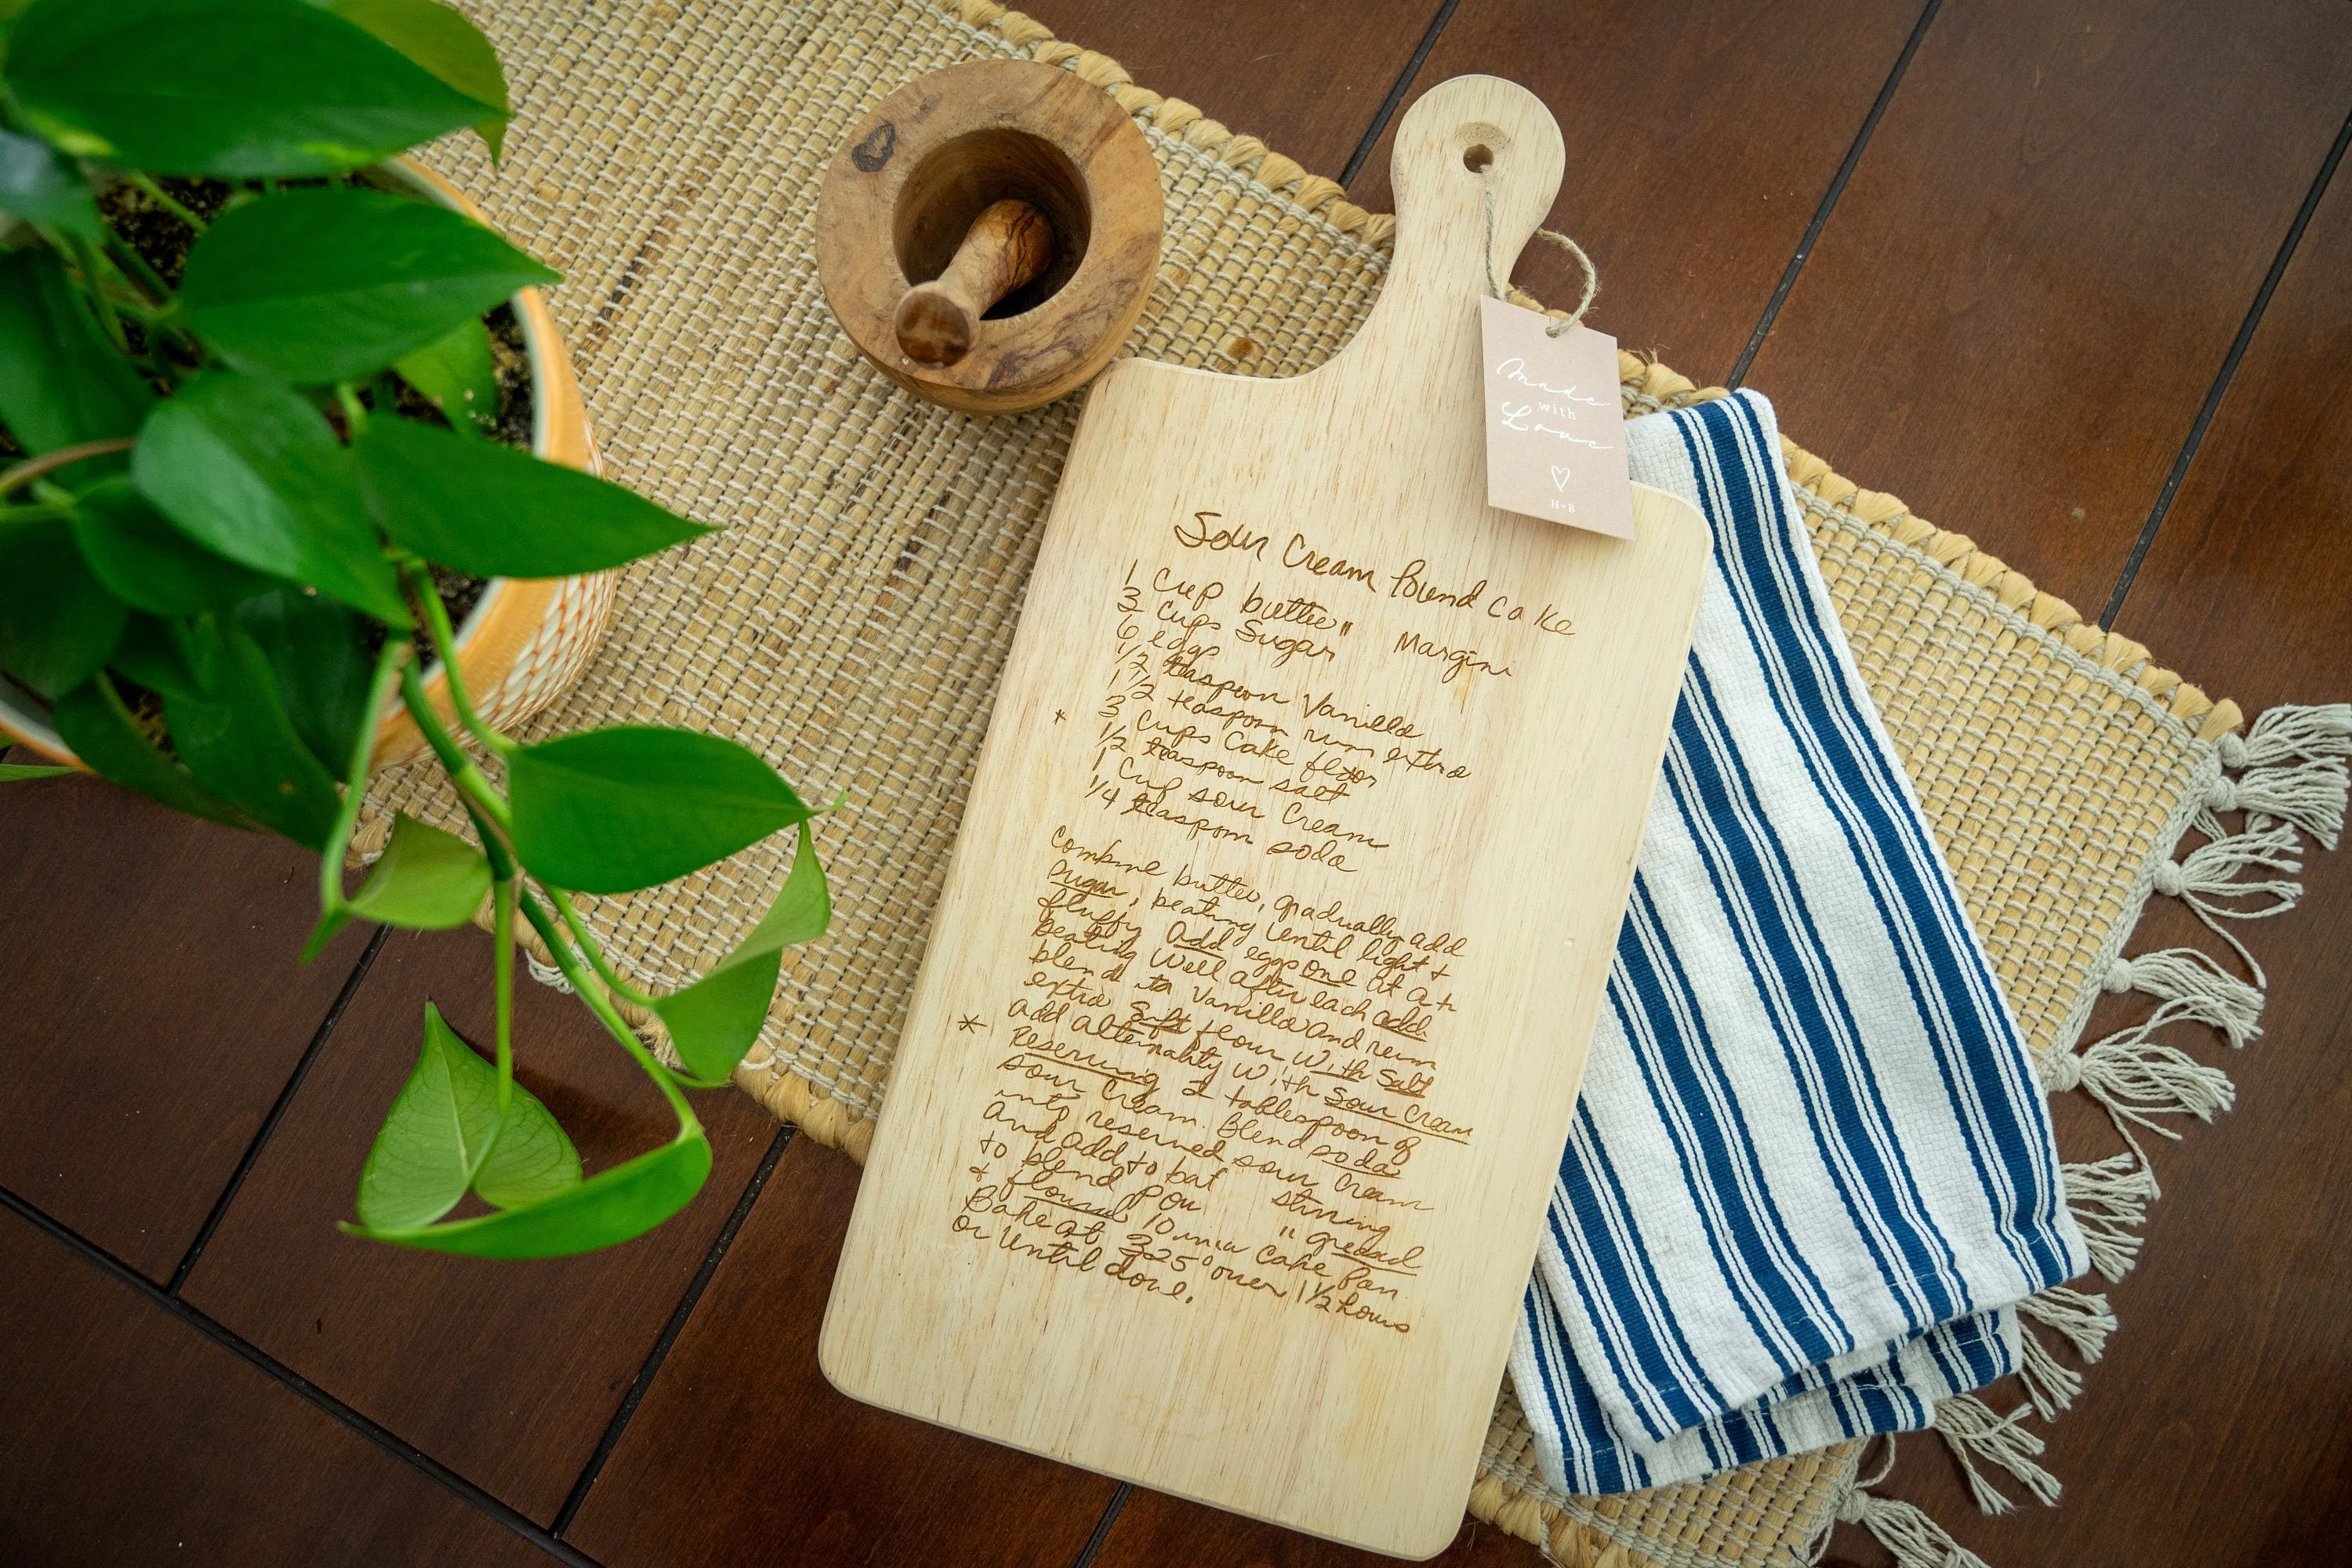 Made
with
Love
H+B
Sour Cream Pound Cake
1 Cup butter" Margini
3 Cups Sugar
6 eggs
1/2 teaspoon Vanilla
1 1/2 teaspoon rum extra
* 3 Cups Cake flour
1/2 teaspoon salt
1 Cup sour Cream
1/4 teaspoon soda
Combine butter, gradually add
Sugar, beating Until light &
fluffy Add eggs one at a t
beating Well after each add
blend Vanilla and rum
extra Sift flour With Salt
* Add alternality with Sour Cream
Reserving 2 tablespoon of
sour Cream. Blend soda
into reserved sour Cream
And add to bat stirring
to blend Pou " greased
& floured 10 Cake Pan
Bake at 325° over 1 1/2 hours
or Until done.